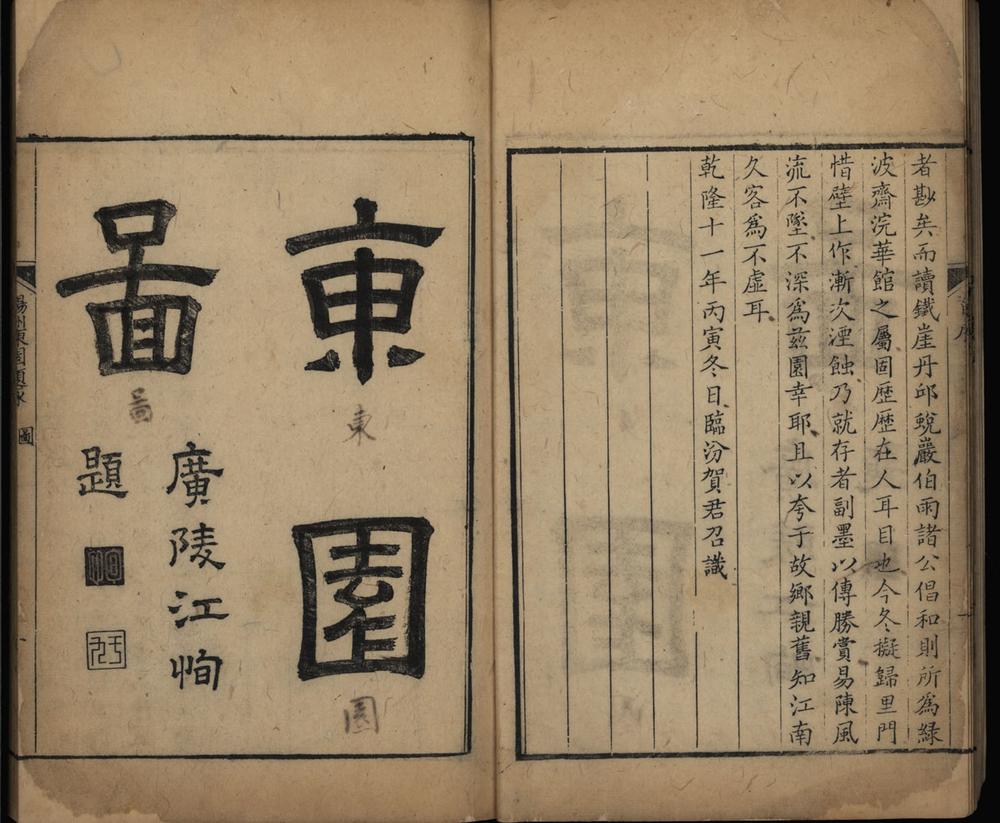 者尠矣而讀鐵崖丹邱蛻巖伯雨諸公倡和則所為緑
波齋浣華館之屬固歷歷在人耳目也今冬擬歸里門
惜壁上作漸次湮蝕乃就存者副墨以傳勝賞易陳風
流不墜不深為茲園幸耶且以夸于故鄉親舊知江南
久客為不虛耳
乾隆十一年丙寅冬日臨汾賀君召識
東園
東
園
圖
圖
廣陵江恂
題
圖